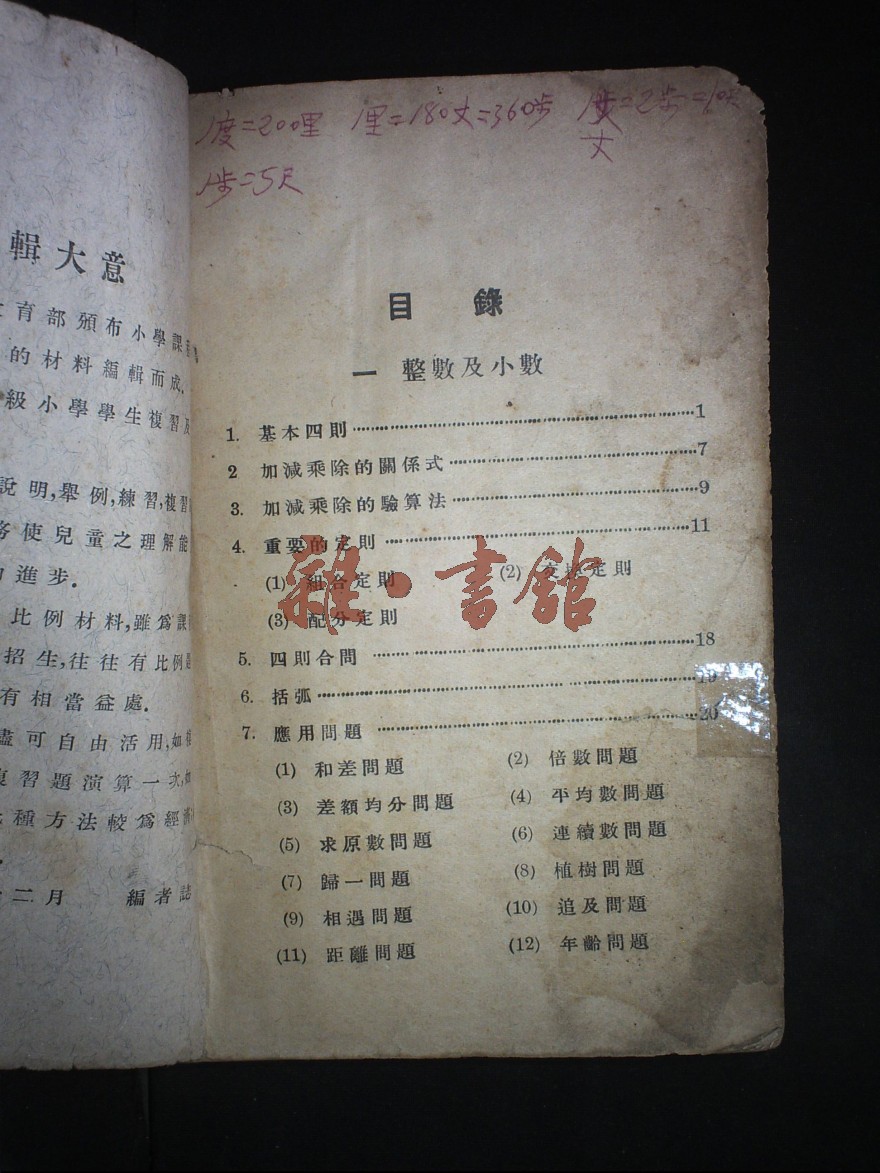 輯大意
育部頒布小學課
的材料編輯而成.
級小學學生複習及
說明,舉例,練習,複習
使兒童之理解能
進步.
比例材料,雖爲課
招生,往往有比例題
有相當益處.
儘可自由活用,如
複習題演算一次,如
種方法較爲經濟
二月 編者誌
1度=200里 1里=180丈=360步 1丈=2步=10尺
丈
1步=5尺
目錄
一 整數及小數
1. 基本四則……1
2 加減乘除的關係式……7
3. 加減乘除的驗算法……9
4. 重要的定則……11
(1) 組合定則 (2) 交換定則
(3) 配分定則
5. 四則合問……18
6. 括弧……19
7. 應用問題……20
(1) 和差問題 (2) 倍數問題
(3) 差額均分問題 (4) 平均數問題
(5) 求原數問題 (6) 連續數問題
(7) 歸一問題 (8) 植樹問題
(9) 相遇問題 (10) 追及問題
(11) 距離問題 (12) 年齡問題
雜·書館